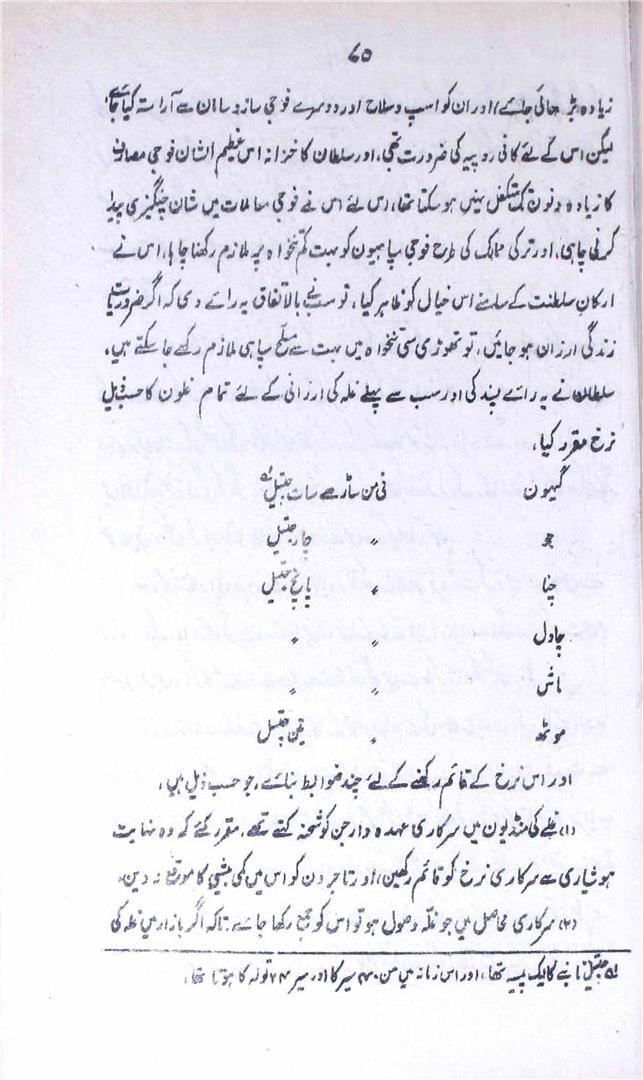 ۷۵
زیادہ بڑھائی جائے، اور ان کو اسپ و سلاح اور دوسرے فوجی ساز و سامان سے آراستہ کیا جائے
لیکن اس کے لئے کافی روپیہ کی ضرورت تھی، اور سلطان کا خزانہ اس عظیم الشان فوجی مصارف
کا زیادہ دنون تک متکفل نہیں ہو سکتا تھا، اس لئے اس نے فوجی معاملات میں شان چنگیزی پیدا
کرنی چاہی، اور ترکی ممالک کی طرح فوجی سپاہیون کو بہت کم تنخواہ پر ملازم رکھنا چاہا، اس نے
ارکان سلطنت کے سامنے اس خیال کو ظاہر کیا، تو سب نے بالاتفاق یہ رائے دی کہ اگر ضروریات
زندگی ارزان ہو جائیں، تو تھوڑی سی تنخواہ میں بہت سے مسلح سپاہی ملازم رکھے جا سکتے ہیں،
سلطان نے یہ رائے پسند کی اور سب سے پہلے غلہ کی ارزانی کے لئے تمام غلون کا حسب ذیل
نرخ مقرر کیا،
گیہون فی من ساڑھے سات جیتل ؎۱
جو ״ چار جیتل
چنا ״ پانچ جیتل
چاول ״ ״
ماش ״ ״
موٹھ ״ تین جیتل
اور اس نرخ کے قائم رکھنے کے لئے چند ضوابط بنائے، جو حسب ذیل ہیں،
(۱) غلے کی منڈیون میں سرکاری عہدہ دار جن کو شحنہ کہتے تھے، مقرر کئے کہ وہ نہایت
ہوشیاری سے سرکاری نرخ کو قائم رکھیں، اور تاجرون کو اس میں کمی بیشی کا موقع نہ دین،
(۲) سرکاری محاصل میں جو غلہ وصول ہو تو اس کو جمع رکھا جائے، تاکہ اگر بازار میں غلہ کی
؎۱ جیتل تانبے کا ایک پیسہ تھا، اور اس زمانہ میں من ۴۰ سیر کا اور سیر ۲۴ تولہ کا ہوتا تھا،